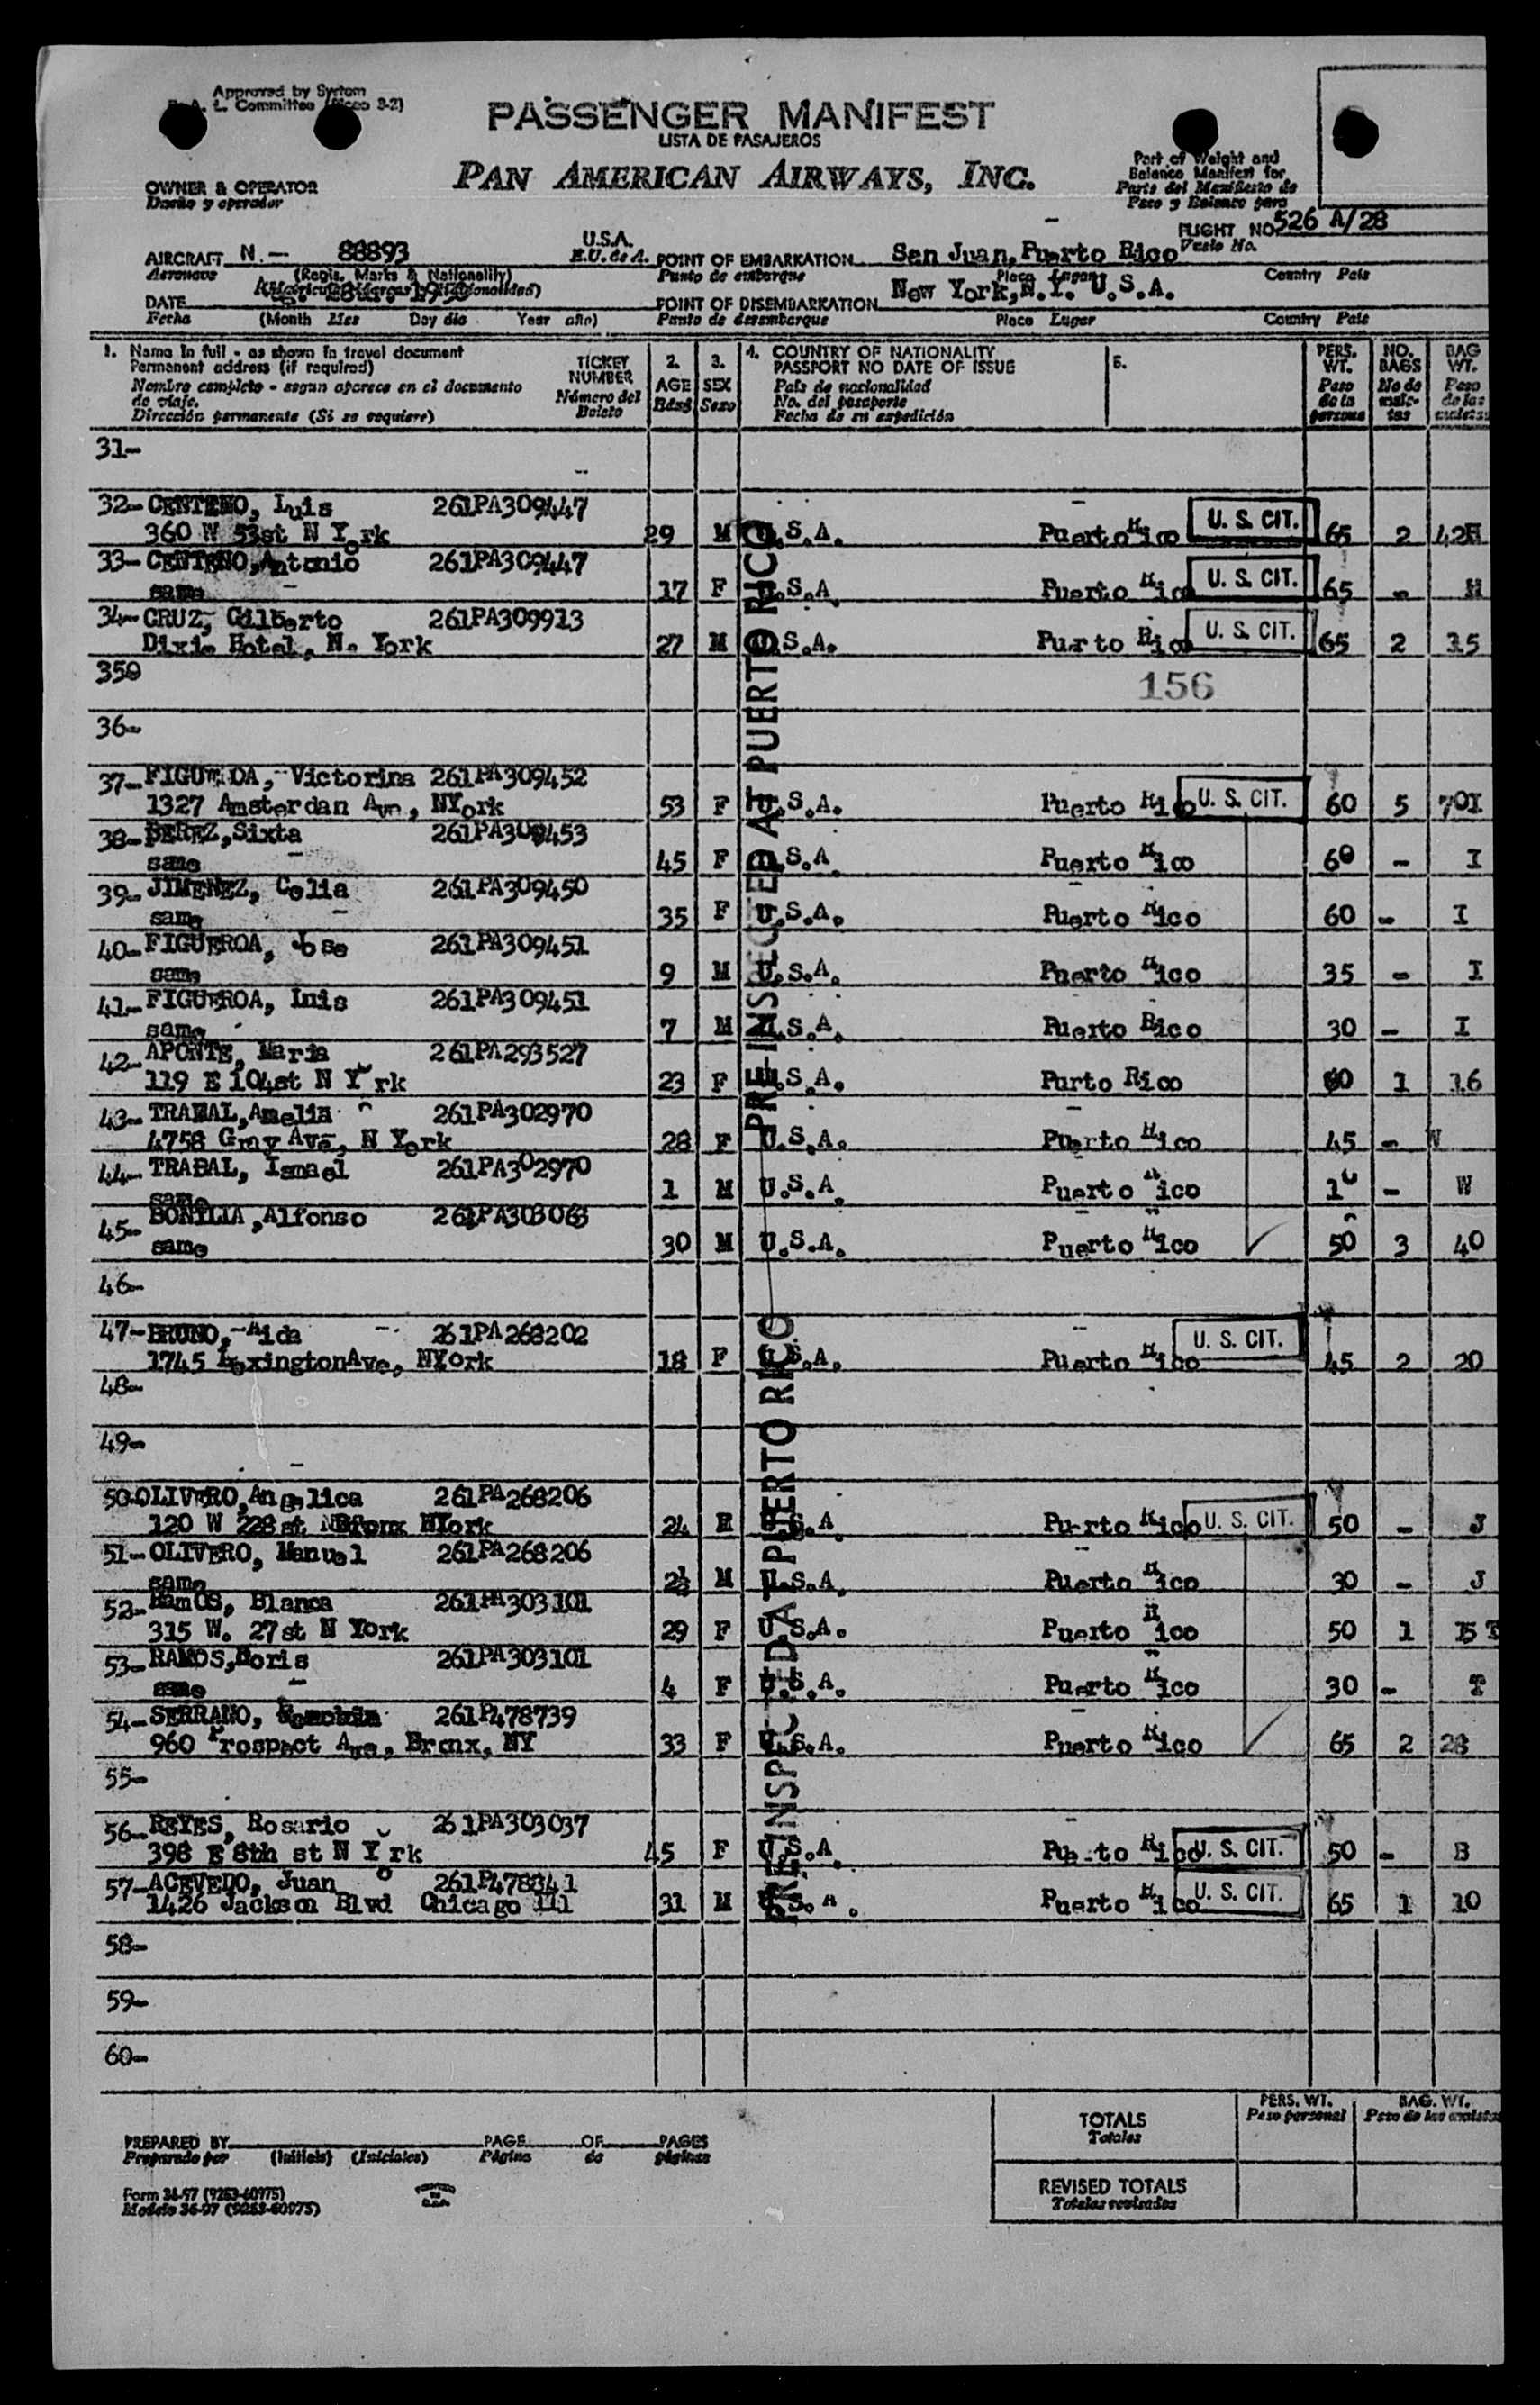 Approved by System
A. L. Committee 3-2)
PASSENGER MANIFEST
LISTA DE PASAJEROS
PAN AMERICAN AIRWAYS, INC.
Part of Weight and
Balance Manifest for
Parte del Manifiesto de
Peso y Balance para
OWNER & OPERATOR
Dueño y operador
FLIGHT NO 526 A/28
Vuelo No.
AIRCRAFT N.- 88893 U.S.A.
E.U. de A.
Aeronave (Regis. Marks & Nationality)
POINT OF EMBARKATION San Juan, Puerto Rico
Punto de embarque Place Lugar Country País
DATE
Fecha (Month Mes Day día Year año)
POINT OF DISEMBARKATION New York, N.Y. U.S.A.
Punto de desembarque Place Lugar Country País
1. Name in full - as shown in travel document
Permanent address (if required)
Nombre completo - segun aparece en el documento
de viaje.
Dirección permanente (Si se requiere)
TICKET
NUMBER
Número del
Boleto
2.
AGE
Edad
3.
SEX
Sexo
4. COUNTRY OF NATIONALITY
PASSPORT NO DATE OF ISSUE
País de nacionalidad
No. del pasaporte
Fecha de su expedición
5.
PERS.
WT.
Peso
de la
persona
NO.
BAGS
No de
male-
tas
BAG
WT.
Peso
de las
maletas
31-
32- CENTENO, Luis 261PA309447
360 W 53st N York 29 M U.S.A. Puerto Rico U. S. CIT. 65 2 42H
33- CENTENO,Antonio 261PA309447
same 17 F U.S.A Puerto Rico U. S. CIT. 65 - H
34- CRUZ, Gilberto 261PA309913
Dixie Hotel, N. York 27 M U.S.A. Puerto Rico U. S. CIT. 65 2 35
350
156
36-
37- Victorina 261PA309452
1327 Amsterdan Ave, NYork 53 F U.S.A. Puerto Rico U. S. CIT. 60 5 70I
38- PEREZ,Sixta 261PA309453
same 45 F U.S.A Puerto Rico 60 - I
39- JIMENEZ, Celia 261PA309450
same 35 F U.S.A. Puerto Rico 60 - I
40- FIGUEROA, Jose 261PA309451
same 9 M U.S.A. Puerto Rico 35 - I
41- FIGUEROA, Inis 261PA309451
same 7 M U.S.A. Puerto Rico 30 - I
42- APONTE, Maria 261PA293527
119 E 104st N York 23 F U.S.A. Purto Rico 60 1 16
43- TRABAL,Amelia 261PA302970
4758 Gray Ave, N York 28 F U.S.A. Puerto Rico 45 - W
44- TRABAL, Ismael 261PA302970
same 1 M U.S.A. Puerto Rico - W
45- BONILLA ,Alfonso 261PA303063
same 30 M U.S.A. Puerto Rico 50 3 40
46-
47- BRUNO, Aida 261PA268202
1745 LexingtonAve, NYork 18 F U.S.A. Puerto Rico U. S. CIT. 45 2 20
48-
49-
50-OLIVERO,Angelica 261PA268206
120 W 228st NYork 24 U.S.A Puerto Rico U. S. CIT. 50 - J
51- OLIVERO, Manuel 261PA268206
same 2½ M U.S.A. Puerto Rico 30 - J
52- RamOS, Blanca 261PA303101
315 W. 27st N York 29 F U.S.A. Puerto Rico 50 1
53- RAMOS,Doris 261PA303101
same 4 F U.S.A. Puerto Rico 30 - T
54- SERRANO, 261P478739
960 Prospect Ave, Bronx, NY 33 F U.S.A. Puerto Rico 65 2 28
55-
56- REYES, Rosario 261PA303037
398 E 8th st N York 45 F U.S.A. Puerto Rico U. S. CIT. 50 - B
57- ACEVEDO, Juan 261P478341
1426 Jackson Blvd Chicago Ill 31 M U.S.A. Puerto Rico U. S. CIT. 65 1 10
58-
59-
60-
PRE-INSPECTED AT PUERTO RICO
PRE-INSPECTED AT PUERTO RICO
PREPARED BY PAGE OF PAGES
Preparado por (Initials) (Iniciales) Página de páginas
Form 36-97 (9263-60975)
Modelo 36-97 (9263-60975)
PERS. WT.
Peso personal
BAG. WT.
Peso de las maletas
TOTALS
Totales
REVISED TOTALS
Totales revisados